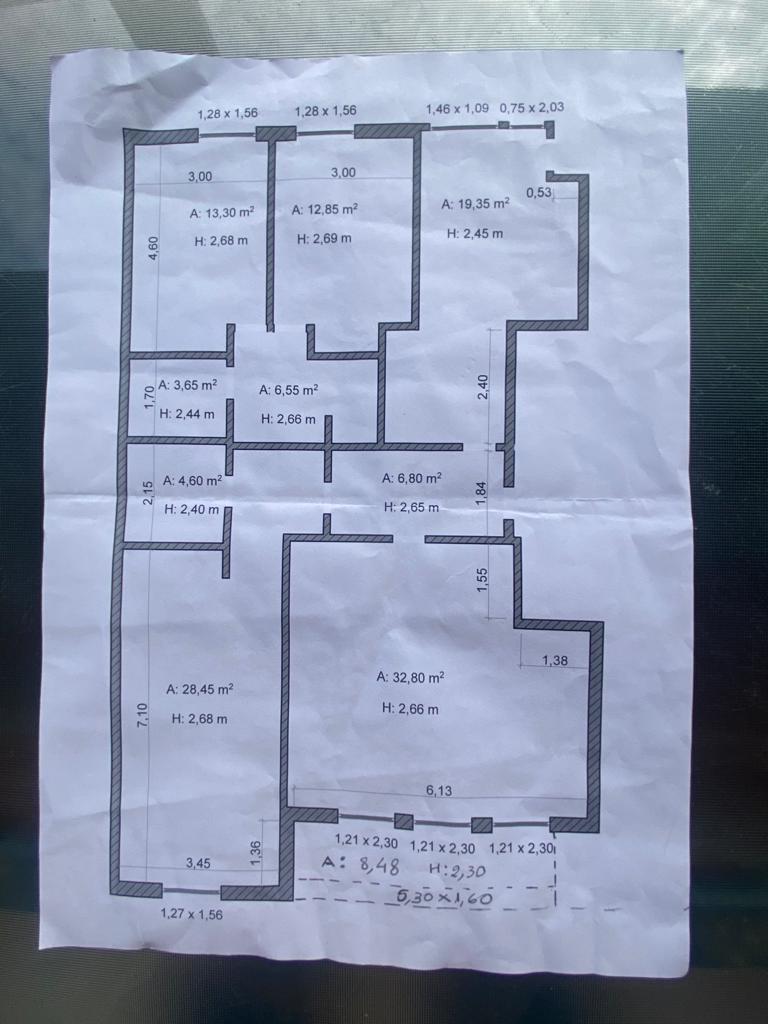 1,28 x 1,56
1,28 x 1,56
1,46 x 1,09
0,75 x 2,03
3,00
3,00
0,53
A: 13,30 m²
H: 2,68 m
A: 12,85 m²
H: 2,69 m
A: 19,35 m²
H: 2,45 m
4,60
1,70
A: 3,65 m²
H: 2,44 m
A: 6,55 m²
H: 2,66 m
2,40
2,15
A: 4,60 m²
H: 2,40 m
A: 6,80 m²
H: 2,65 m
1,84
1,55
1,38
A: 28,45 m²
H: 2,68 m
A: 32,80 m²
H: 2,66 m
7,10
6,13
1,21 x 2,30
1,21 x 2,30
1,21 x 2,30
3,45
1,36
A: 8,48 H: 2,30
5,30 x 1,60
1,27 x 1,56